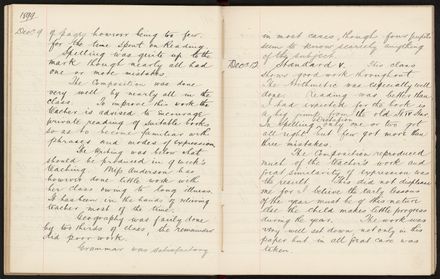 1899.
Dec 9 of pages however being too few.
for the time spent on Reading.
Spelling was quite up to the
mark though nearly all had
one or more mistakes
The Composition was done
very well by nearly all in the
class. To improve this work the
teacher is advised to encourage
private reading of suitable books
so as to become familiar with
phrases and modes of expression
The Writing was below what
should be produced in a week's
teaching Miss Anderson has
however done little work with
her class owing to long illness.
It has been in the hands of relieving
teacher most of the time.
Geography was fairly done
by two thirds of class, the remainder
did poor work.
Grammar was satisfactory
in most cases, though four pupils
seem to know scarcely anything
of the subject
Dec 12 Standard V. This class
shows good work throughout
The Arithmetic was especially well
done. Reading was better than
I had expected for the book is
a big jump from the old
In Spelling some one or two got
all right but few got more than
three mistakes.
The Composition reproduced
much of the Teacher's work and
great similarity of expression was
the result. This did not displease
me for I believe the early lessons
of the year must be of this nature
else the child makes little progress
during the year. The work was
very well set down not only in this
paper but in all great care was
taken.